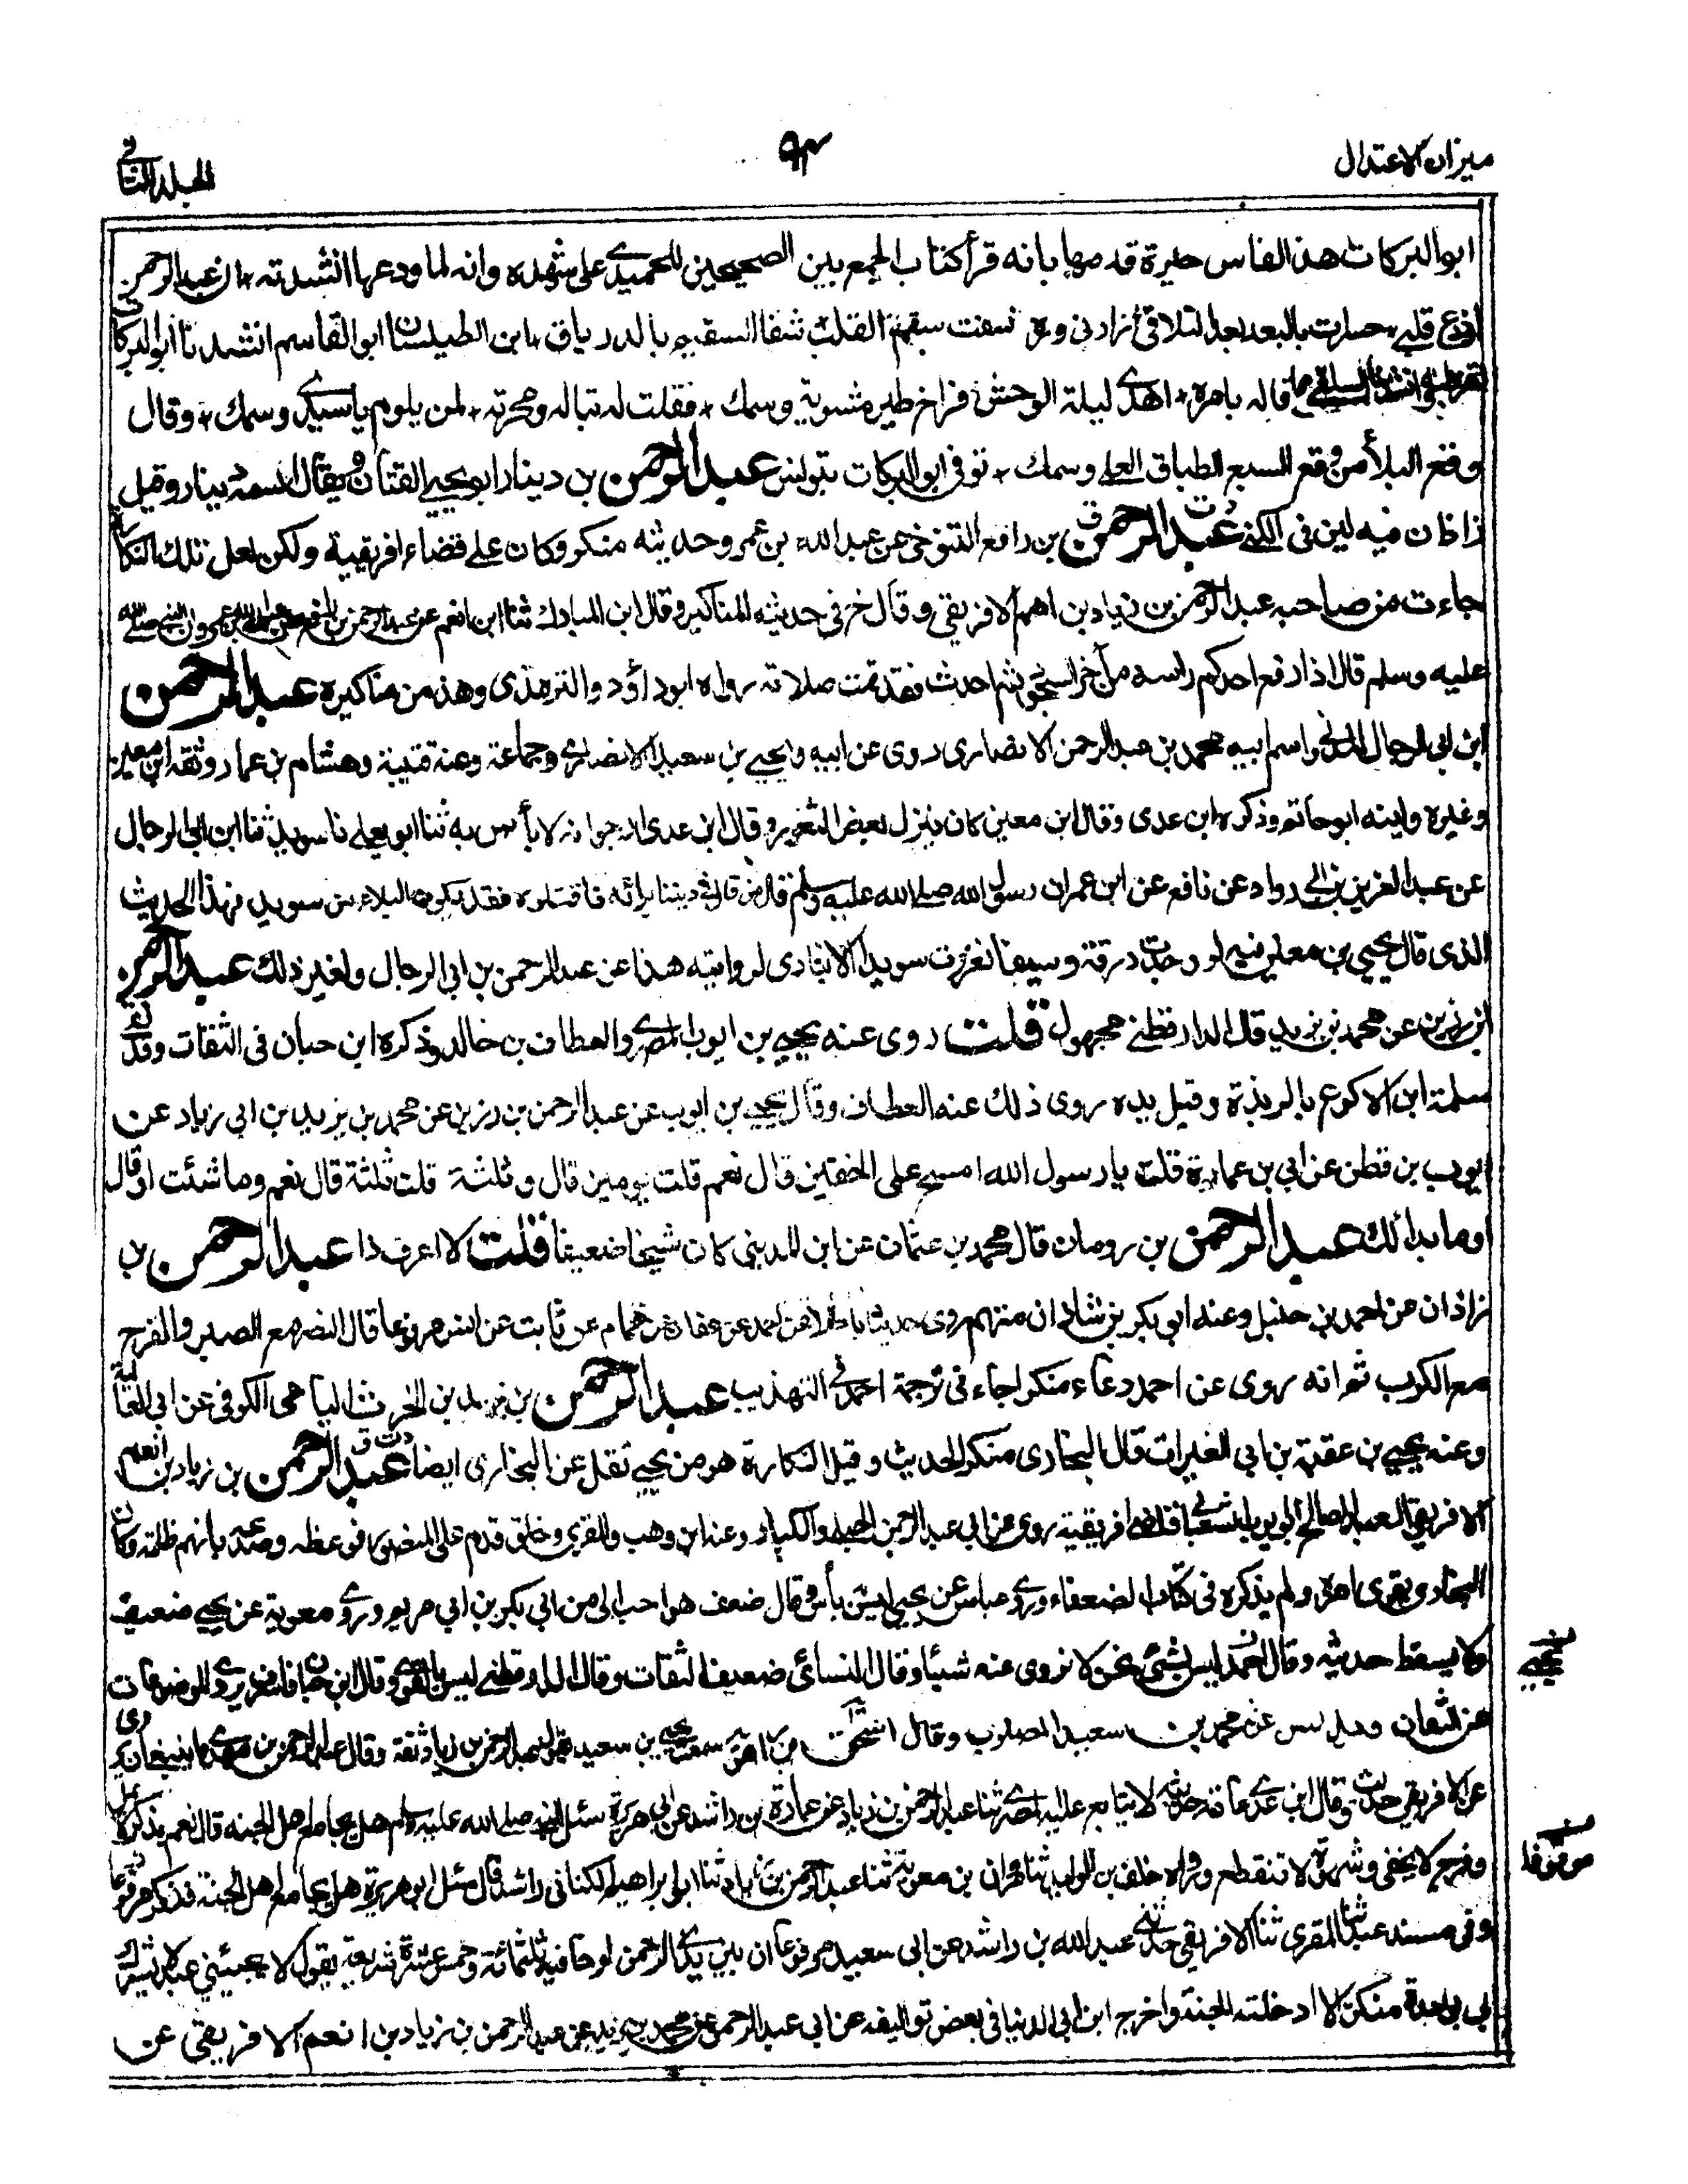 ميزان الاعتدال
٩٣
المجلد الثاني
ابوالبركات هذا الفاس حيرة قدمها بانه قرأ كتاب الجمع بين الصحيحين للحميدي على شهده وانه لما ودعها انشدته ان عبدالرحمن
قلبي بالبعد بعد التلاقي ازادني شفا السقيم بالدرياق ابن الطيلسان ابوالقاسم انشدنا ابوالبركات
انشدنا السلفي قاله بامره اهدى ليلة الوحش فراخ طير مشوية وسمك فقلت له تباله لمن يلوم ياسيدي وسمك وقال
وقع البلأ من وقع السبع الطباق العلى وسمك توفي ابوالبركات بتونس عبدالرحمن بن دينار ابويحيى القتات ويقال اسمه دينار وقيل
زاذان فيه لين في الكنى عبدالرحمن بن رافع التنوخي عن عبدالله بن عمرو حديثه منكر وكان على قضاء افريقية ولكن لعل تلك النكارة
جاءت من صاحبه عبدالرحمن بن زياد بن انعم الافريقي وقال خ في حديثه المناكير وقال ابن المبارك ثنا ابن انعم عن عبدالرحمن بن رافع عن عبدالله بن عمرو ان النبي صلى الله
عليه وسلم قال اذا رفع احدكم راسه من آخر السجود ثم احدث فقد تمت صلاته رواه ابوداؤد والترمذي وهذ من مناكيره عبدالرحمن
ابن ابي الرجال المدني واسم ابيه محمد بن عبدالرحمن الانصاري روى عن ابيه ويحيى بن سعيد الانصاري وجماعة وعنه قتيبة وهشام بن عمار وثقه ابن معين
وغيره ولينه ابوحاتم وذكره ابن عدى وقال ابن معين كان ينزل بعض الثغور وقال ابن عدى ارجو انه لا بأس به ثنا ابويعلى نا سويد ثنا ابن ابي الرجال
عن عبدالعزيز بن ابي رواد عن نافع عن ابن عمر ان رسول الله صلى الله عليه وسلم قال من قال في ديننا برائه فاقتلوه فقد يكون البلاء من سويد فهذا الحديث
الذى قال يحيى بن معين فيه لو وجدت درقة وسيفا لغزوت سويدا الانباري لروايته هذا عن عبدالرحمن بن ابي الرجال ولغير ذلك عبدالرحمن
ابن رزين عن محمد بن يزيد قال الدارقطني مجهول قلت روى عنه يحيى بن ايوب المصري والعطاف بن خالد وذكره ابن حبان في الثقات وقد لقي
سلمة ابن الاكوع بالربذة وقبل يده روى ذلك عنه العطاف وقال يحيى بن ايوب عن عبدالرحمن بن رزين عن محمد بن يزيد بن ابي زياد عن
ايوب بن قطن عن ابي بن عمارة قلت يا رسول الله امسح على الخفين قال نعم قلت يومين قال وثلثة قلت ثلثة قال نعم وما شئت او قال
وما بدا لك عبدالرحمن بن رومان قال محمد بن عثمان عن ابن المديني كان شيخا ضعيفا قلت لا اعرف ذا عبدالرحمن بن
زاذان عن احمد بن حنبل وعنه ابي بكر بن شاذان متهم روى حديثا باطلا عن احمد عن عفان عن همام عن ثابت عن انس مرفوعا قال النصر مع الصبر والفرج
مع الكرب ثم انه روى عن احمد دعاء منكرا جاء في ترجمة احمد في التهذيب عبدالرحمن بن زبيد بن الحرث اليامى الكوفى عن ابي العالية
وعنه يحيى بن عقبة بن ابي العيزارقال البخاري منكر الحديث وقيل النكارة هو من يحيى نقل عن البخاري ايضا عبدالرحمن بن زياد بن انعم
الافريقي العبد الصالح ابو ايوب الشعباني قاضي افريقية روى عن ابي عبدالرحمن الحبلي والكبار وعنه ابن وهب والمقري وخلق قدم على المنصور فوعظه وصدعه بانهم ظلمة وكان
البخاري يقوى امره ولم يذكره في كتاب الضعفاء وروى عباس عن يحيى ليس به بأس وقال ضعف هو احب الي من ابي بكر بن ابي مريم وروى معوية عن يحيى ضعيف
ولا يسقط حديثه وقال احمد ليس بشئ نحن لا نروى عنه شيئا وقال النسائي ضعيف الثقات وقال الدارقطني ليس بالقوي وقال ابن حبان فانه يروي الموضوعات
عن الثقات ويدلس عن محمد بن سعيد المصلوب وقال اسحق بن راهويه سمعت يحيى بن سعيد يقول عبدالرحمن بن زياد ثقة وقال عبدالرحمن بن مهدي ما ينبغي ان يروى
عن الافريقي حديث وقال ابن عدي عامة حديثه لا يتابع عليه ثنا عبدالرحمن بن زياد عن عمارة بن راشد عن ابي هريرة سئل النبي صلى الله عليه وسلم هل يجامع اهل الجنة قال نعم بذكر لا يمل
وفرج لا يخفى وشهوة لا تنقطع ورواه خلف بن الوليد ثنا مروان بن معوية ثنا عبدالرحمن بن زياد ثنا ابراهيم الكناني راشد قال سئل ابو هريرة هل يجامع اهل الجنة فذكره مرفوعا
وفي مسند عبد ثنا المقري ثنا الافريقي حدثني عبدالله بن راشد عن ابي سعيد مرفوعا ان بين يدي الرحمن لوحا فيه ثلثمائة وخمس عشرة شريعة يقول لا يجيئني عبد لا يشرك
بي بواحدة منكن الا ادخلته الجنة واخرج ابن ابي الدنيا في بعض تواليفه عن ابي عبدالرحمن عن محمد بن يزيد عن عبدالرحمن بن زياد بن انعم الافريقي عن
يحيى
موقوفا